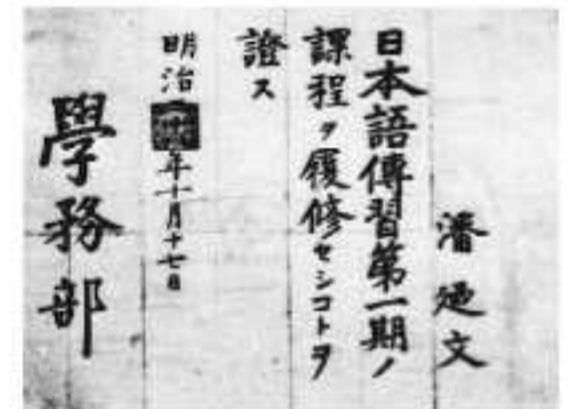 潘廷文
日本語傳習第一期ノ
課程ヲ履修セシコトヲ
證ス
明治廿年十月十七日
學務部